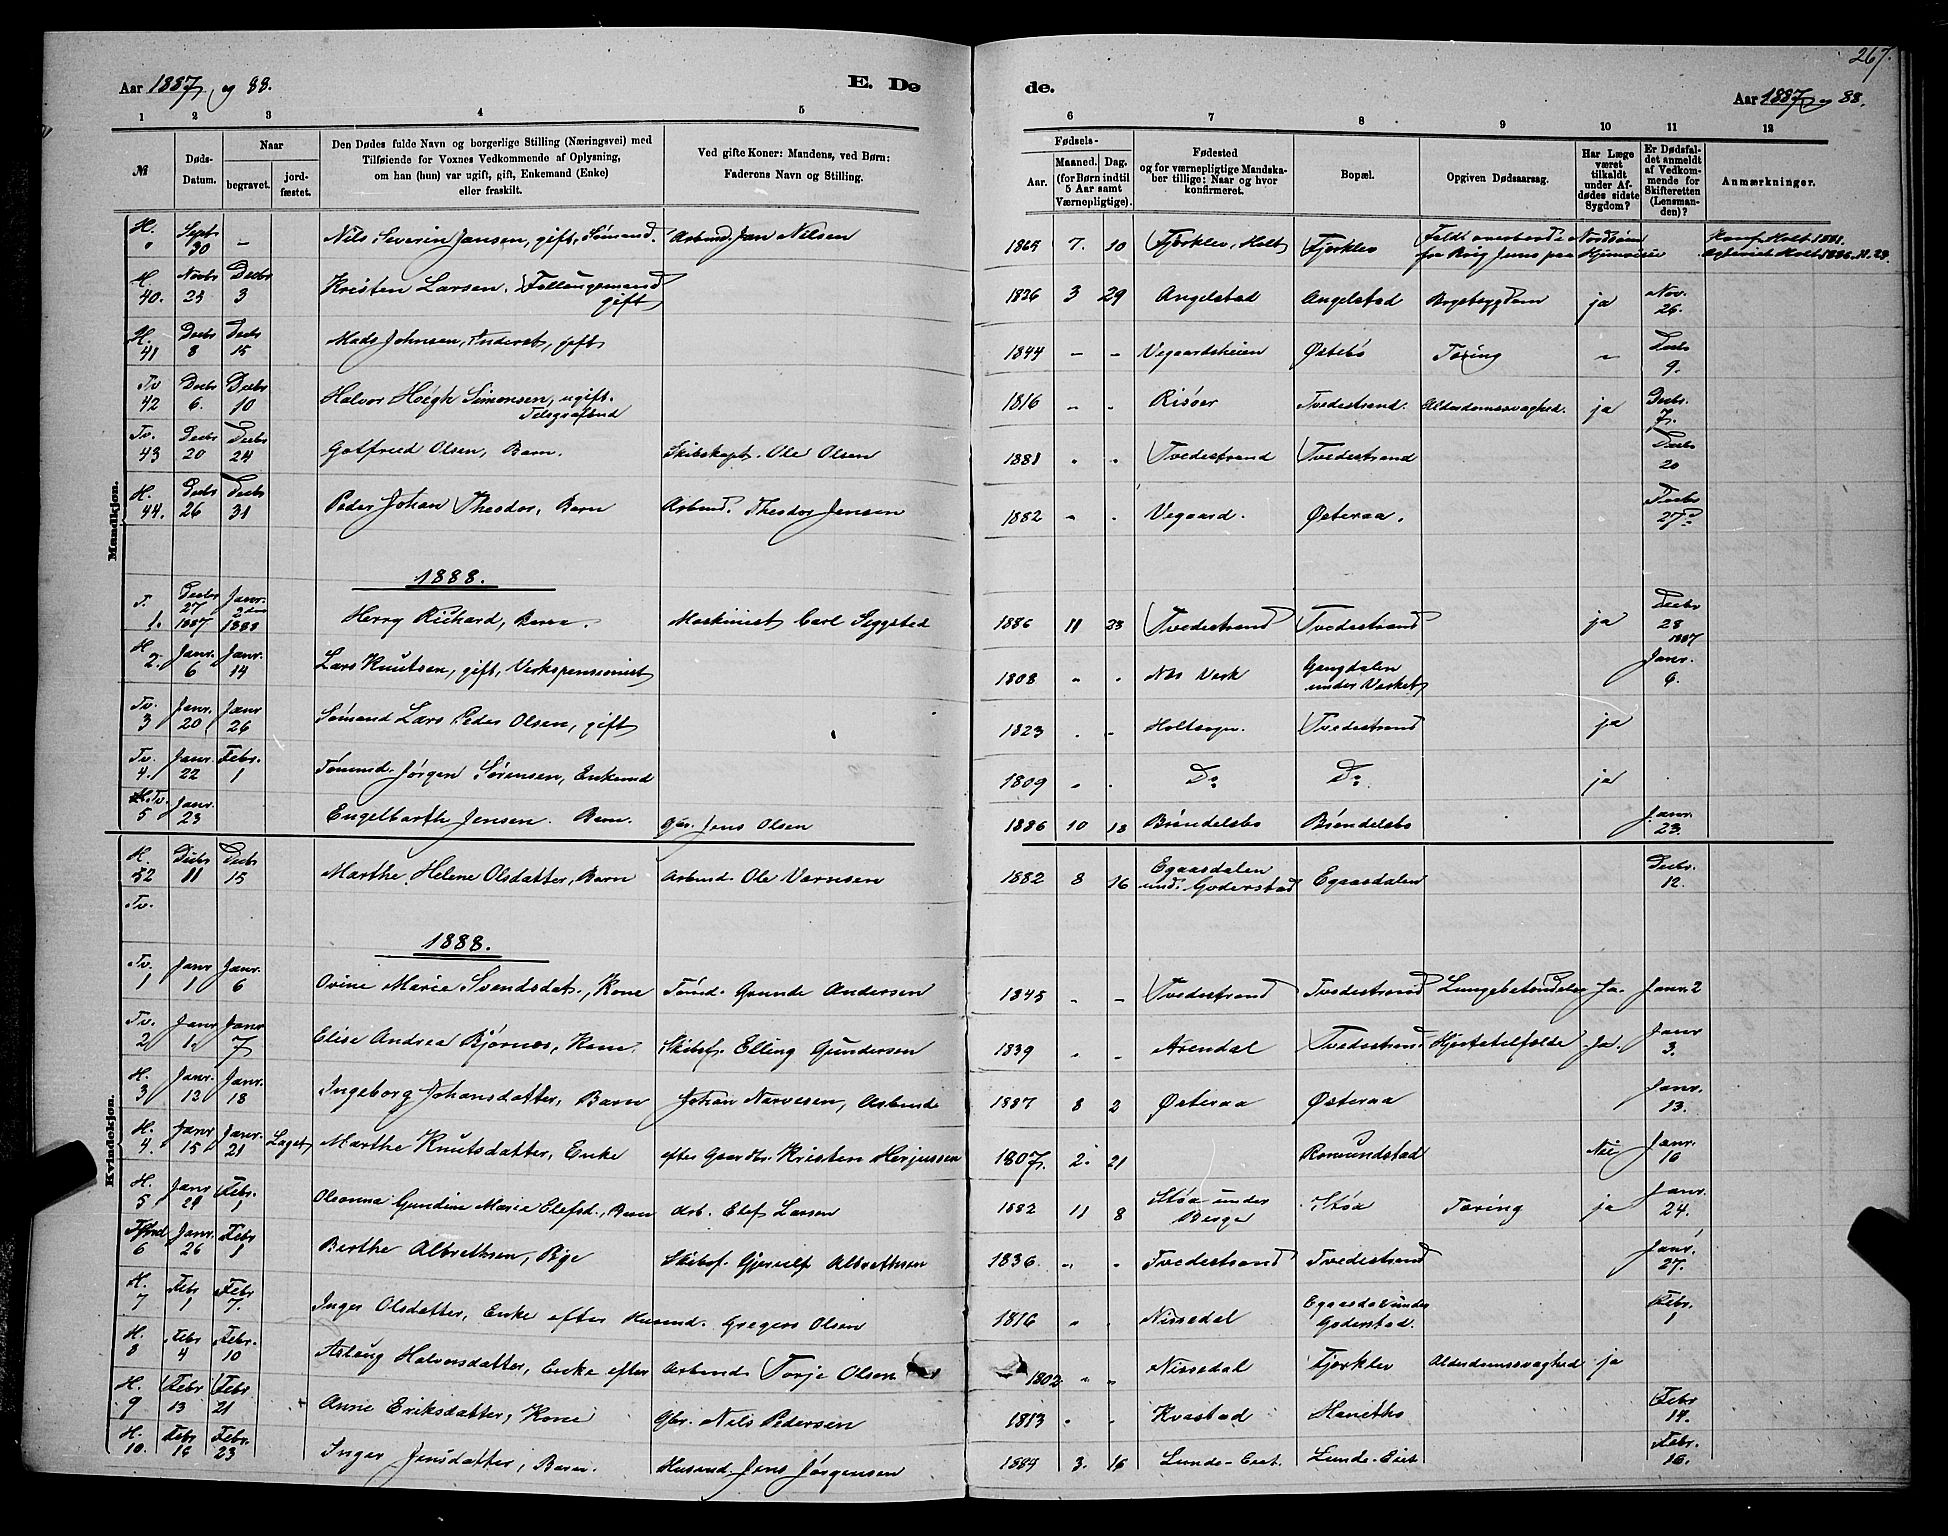 267.
Aar 1887 og 88. E. Dø
de. Aar 1887 og 88.
1 2 3 4 5 6 7 8 9 10 11 12
№ Døds-Datum. Naar begravet. jordfæstet. Den Dødes fulde Navn og borgerlige Stilling (Næringsvei) med Tilføiende for Voxnes Vedkommende af Oplysning, om han (hun) var ugift, gift, Enkemand (Enke) eller fraskilt. Ved gifte Koner: Mandens, ved Børn: Faderens Navn og Stilling. Fødsels- Aar. Maaned. Dag. (for Børn indtil 5 Aar samt Værnepligtige). Fødested og for værnepligtige Mandskaber tillige: Naar og hvor konfirmeret. Bopæl. Opgiven Dødsaarsag. Har Læge været tilkaldt under Afdødes sidste Sygdom? Er Dødsfaldet anmeldt af Vedkommende for Skifteretten (Lensmanden)? Anmærkninger.
Mandkjøn.
H. " Septr 30 – Nils Severin Jansen, gift, Sømand. Arbmd. Jan Nilsen 1865 7. 10 Fjorklev, Holt Fjorklev Faldt overbord i Nordsøen fra Brig Juno paa Hjemreise Konf. Holt 1881. Holt 1886. N. 29.
H. 40. Novbr 23 Decbr 3 Kristen Larsen. gift 1826 3 29 Angelstad Angelstad Brystsygdom ja Nov. 26.
H. 41 Decbr 8 Decbr 15 Mads Johnsen, Inderst, gift 1844 – – Vegaardsheien Østebø Tæring " Decbr 9.
Tv 42 Decbr 6. Decbr 10 Halvor Höegh Simonsen, ugift. Telegrafbud 1816 " " Risöer Tvedestrand. Alderdomssvaghed. ja Decbr. 7.
Tv. 43 Decbr 20 Decbr 24 Gotfried Olsen, Barn. Skibskapt. Ole Olsen 1881 " " Tvedestrand Tvedestrand Decbr 20
H. 44. Decbr 26 Decbr 31 Peder Johan Theodor, Barn Arbmd. Theodor Jensen 1882 " " Vegaard. Østeraa. Decbr 27
1888.
T. 1. Decbr 27 1887 Janr. 2den 1888 Herry Richard, Barn. Maskinist Carl Seggsted 1886 11 23 Tvedestrand Tvedestrand ja Decbr 28 1887
H. 2. Janr. 6 Janr. 14 Lars Knutsen, gift, Verkspensionist 1808 " " Næs Verk Gangdalen under Verket Janr. 6.
Tv. 3 Janr. 20 Janr 26 Sömand Lars Peder Olsen, gift 1823 " " Holtsogn. Tvedestrand ja
Tv. 4. Janr. 22 Febr. 1 Tömmd. Jörgen Sörensen, Enkemd 1809 " " Do Do ja
Tv. 5 Janr. 23 Engelbarth Jensen. Barn. Gbr. Jens Olsen 1886 10 13 Bröndelsbo Bröndelsbo Janr. 23.
Kvindekjøn.
H. 52 Decbr 11 Decbr 15 Marthe Helene Olsdatter, Barn Arbmd. Ole Varnsen 1882 8 16 Egaasdalen und. Goderstad Egaasdalen Decbr. 12.
Tv.
1888.
Tv. 1 Janr 1 Janr. 6 Ovine Marie Svendsdat., Kone Tömd. Gunde Andersen 1845 " " Tvedestrand Tvedestrand Lungebetændelse Ja. Janr. 2
Tv. 2 Janr 1. Janr 7 Elise Andrea Björnæs, Kone. Skibsf. Elling Gundersen 1839 " " Arendal Tvedestrand Hjertetilfælde Ja. Janr 3.
H. 3 Janr. 13 Janr. 18 Ingeborg Johansdatter, Barn Johan Narvesen, Arbmd 1887 8 2 Østeraa Østeraa Janr. 13.
H. 4. Janr 15 Janr. 21 Laget Marthe Knutsdatter, Enke efter Gaardbr. Kristen Herjussen 1807. 2. 21 Romundstad Nei Janr. 16
H. 5 Janr 24 Febr. 1 Olonna Gundine Marie Elefsd., Barn Arb. Elef Larsen 1882 11 8 Stöa under Berge Stöa Tæring ja Janr. 24.
6 Janr. 26 Febr 1 Berthe Albrethsen, Pige Skibsf. Gjerulf Albrethsen 1836. " " Tvedestrand Tvedestrand Janr. 27.
H. 7 Febr 1 Febr 7. Inger Olsdatter, Enke efter Husmd. Gregers Olsen 1816 " " Nissedal Egaasdal under Goderstad. Febr. 1
H. 8 Febr 4 Febr. 10 Aslaug Halvorsdatter, Enke efter Arbmd. Torje Olsen 1802 " " Nissedal Fjorklev Alderdomssvaghed ja
H. 9 Febr 13 Febr 21 Anne Eriksdatter, Kone Gbr. Nils Pedersen 1813 " " Kvastad Hanetho Febr 14.
H. 10. Febr 16 Febr. 23 Inger Jensdatter, Barn. Husmd Jens Jörgensen 1884 3. 16 Lunde-Eiet. Lunde-Eiet Febr. 16.